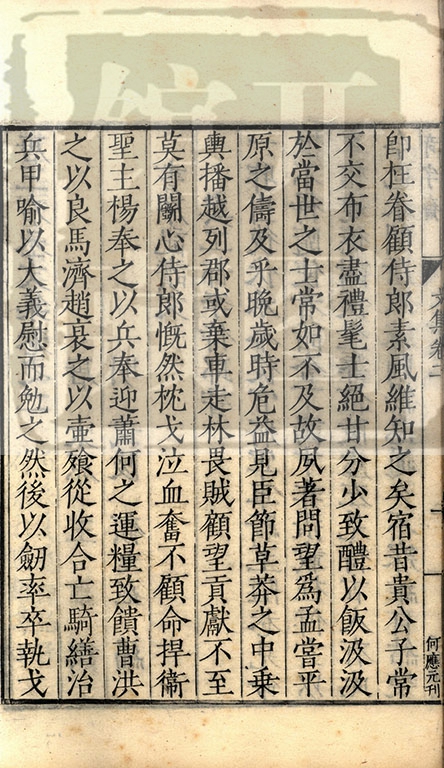 卽枉眷顧侍郎素風維知之矣宿昔貴公子常
不交布衣盡禮髦士絕甘分少致醴以飯汲汲
於當世之士常如不及故夙著問望爲孟嘗平
原之儔及乎晚歲時危益見臣節草莽之中乗
輿播越列郡或棄車走林畏賊顧望貢獻不至
莫有鬬心侍郎慨然枕戈泣血奮不顧命捍衞
聖主楊奉之以兵奉迎蕭何之運糧致饋曹洪
之以良馬濟趙衰之以壷飱從收合亡騎繕治
兵甲喻以大義慰而勉之然後以劒率卒執戈
何應元刊